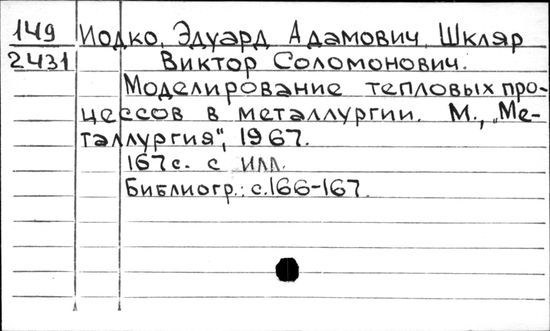 149 Иодко, Эдуард Адамович, Шкляр
2431 Виктор Соломонович.
Моделирование тепловых про-
цессов в металлургии. М., „Ме-
таллургия", 1967.
167с. с илл.
Библиогр.: с.166-167.